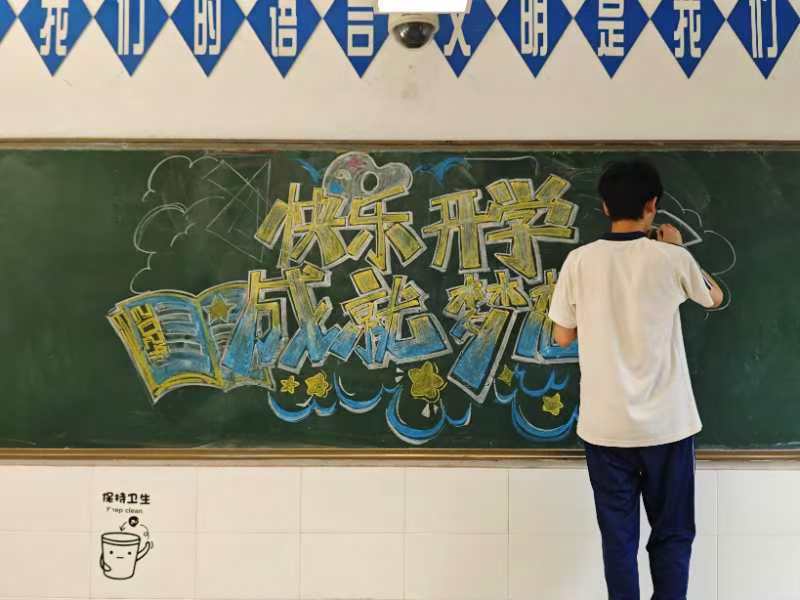 我们的语言文明是我们
快乐开学
成就梦想
2024
保持卫生
Keep clean.